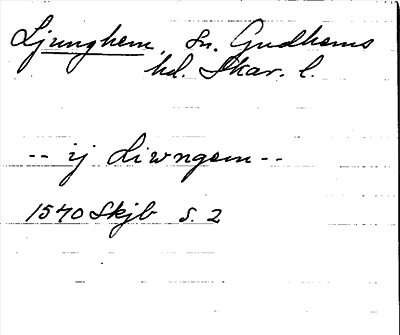 Ljunghem, sn. Gudhems
hd. Skar. l.
-- ij Liwngem --
1540 Skjb s. 2